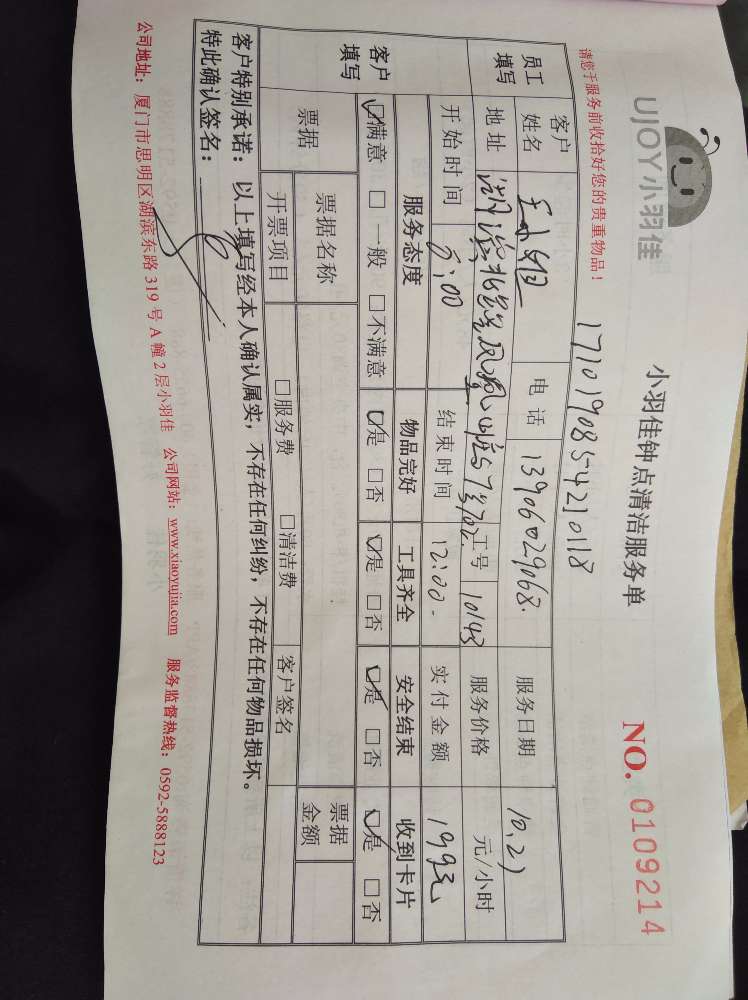 UJOY小羽佳
小羽佳钟点清洁服务单
NO. 0109214
请您于服务前收拾好您的贵重物品！
1710190854210118
员工填写 客户姓名 王小姐 电话 13906029068. 服务日期 10.21
地址 湖滨北路 凤凰山庄 702 工号 10143 服务价格 元/小时
开始时间 8:00 结束时间 12:00 实付金额 199元
客户填写 服务态度 物品完好 工具齐全 安全结束 收到卡片
☑满意 □一般 □不满意 ☑是 □否 ☑是 □否 ☑是 □否 ☑是 □否
票据 票据名称 票据金额
开票项目 □服务费 □清洁费 客户签名
客户特别承诺：以上填写经本人确认属实，不存在任何纠纷，不存在任何物品损坏。
特此确认签名：
公司地址：厦门市思明区湖滨东路 319 号 A 幢 2 层小羽佳 公司网站：www.xiaoyujia.com 服务监督热线：0592-5888123